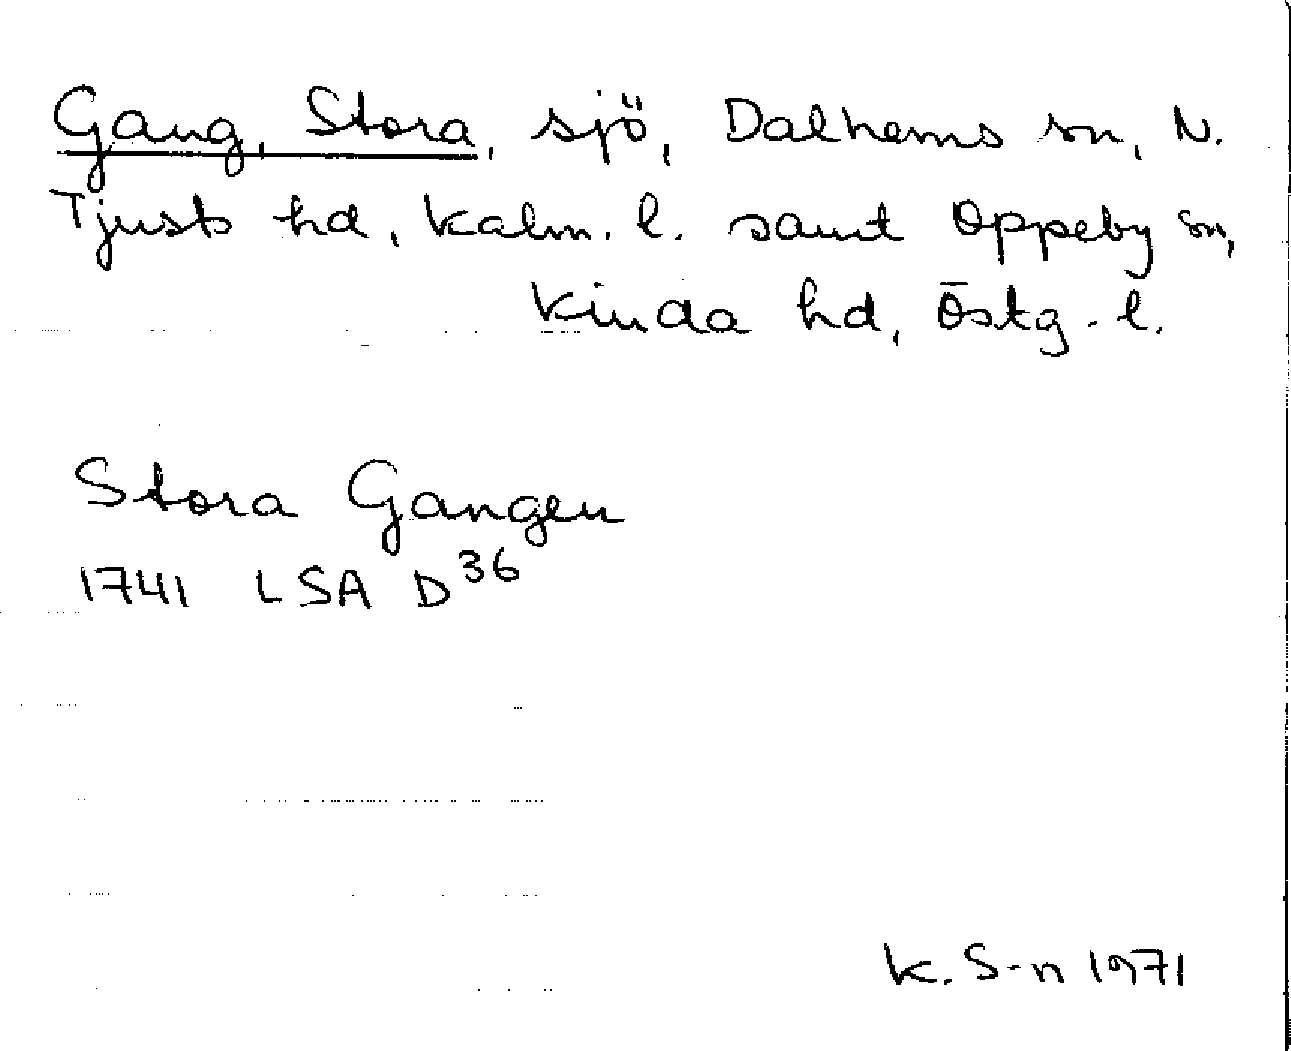 Gang, Stora, sjö, Dalhems sn, N.
Tjusts hd, Kalm. l. samt Oppeby sn,
Kinda hd, Östg. l.
Stora Gangen
1741 LSA D36
K. S-n 1971